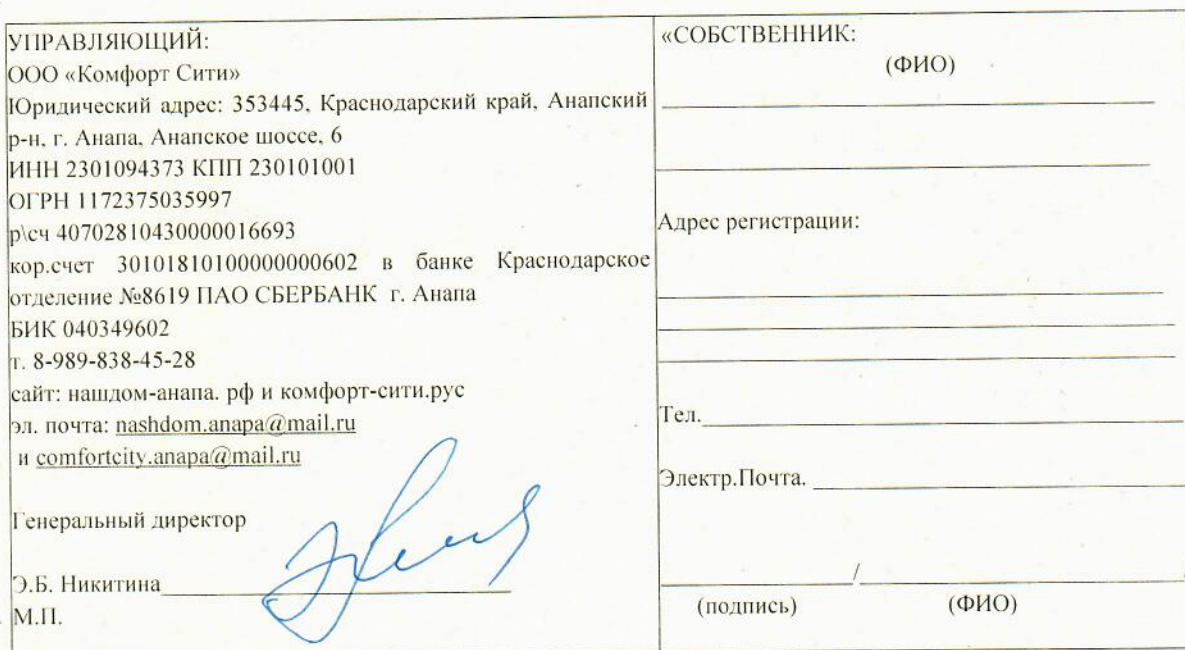 УПРАВЛЯЮЩИЙ:
ООО «Комфорт Сити»
Юридический адрес: 353445, Краснодарский край, Анапский
р-н, г. Анапа, Анапское шоссе, 6
ИНН 2301094373 КПП 230101001
ОГРН 1172375035997
р\сч 40702810430000016693
кор.счет 30101810100000000602 в банке Краснодарское
отделение №8619 ПАО СБЕРБАНК г. Анапа
БИК 040349602
т. 8-989-838-45-28
сайт: нашдом-анапа. рф и комфорт-сити.рус
эл. почта: nashdom.anapa@mail.ru
и comfortcity.anapa@mail.ru
Генеральный директор
Э.Б. Никитина
М.П.
«СОБСТВЕННИК:
(ФИО)
Адрес регистрации:
Тел.
Электр.Почта.
/
(подпись) (ФИО)